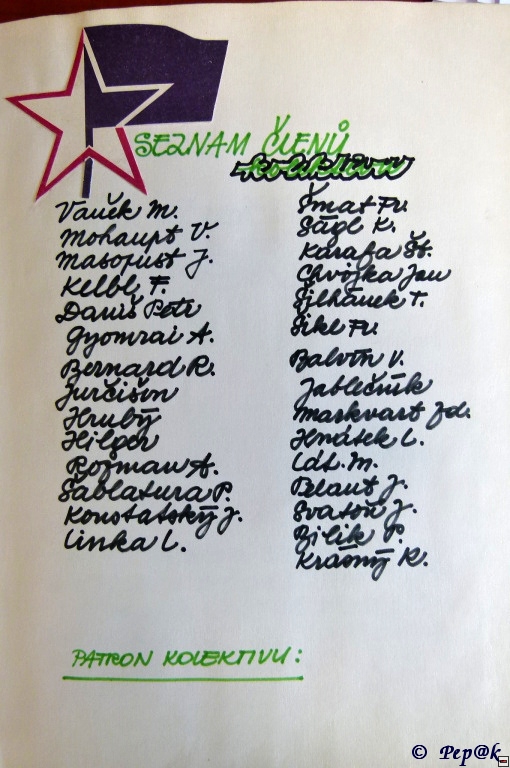 SEZNAM ČLENŮ
kolektivu
Vaněk M.
Mohaupt V.
Masopust J.
Kelbl F.
Daniš Petr
Gyomrai A.
Bernard R.
Jurčišin
Hrubý
Hilger
Rojman A.
Šablatura P.
Konstatský J.
Linka L.
Šmat Fr.
Ságl K.
Karafa Št.
Chvojka Jan
Šilhánek T.
Šikl Fr.
Balvín V.
Jablečník
Markvart Zd.
Hnátek L.
M.
Belant J.
Svatoň J.
Bilik P.
Krásný R.
PATRON KOLEKTIVU:
© Pep@k